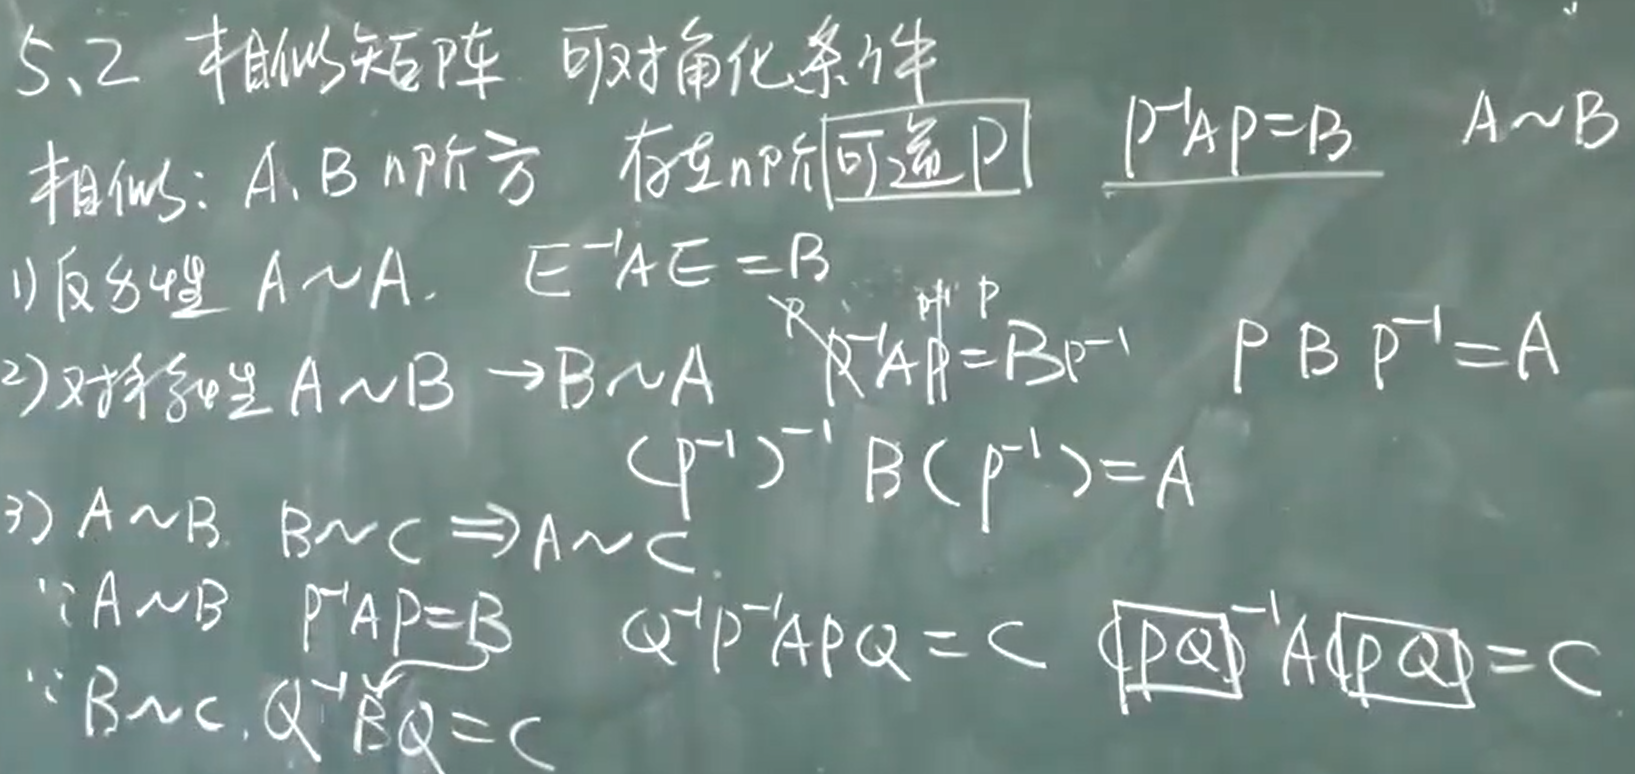 5、2 相似矩阵 可对角化条件
相似: A、B n阶方 存在n阶可逆P P⁻¹AP=B A~B
1) 反身性 A~A. E⁻¹AE=B
2) 对称性 A~B →B~A P P⁻¹AP P⁻¹=BP⁻¹ PBP⁻¹=A
(P⁻¹)⁻¹B(P⁻¹)=A
3) A~B B~C ⇒A~C.
∵A~B P⁻¹AP=B Q⁻¹P⁻¹APQ=C (PQ)⁻¹A(PQ)=C
∵B~C. Q⁻¹BQ=C